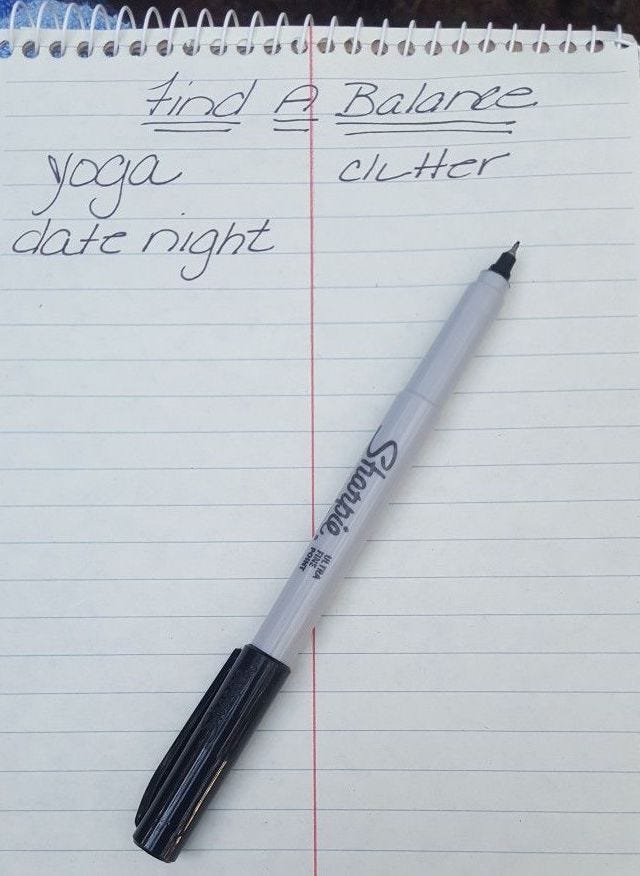 Find A Balance
yoga
clutter
date night
Sharpie
ULTRA
FINE
POINT